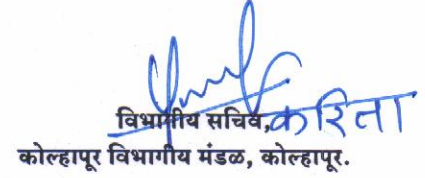 विभागीय सचिव, करिता
कोल्हापूर विभागीय मंडळ, कोल्हापूर.